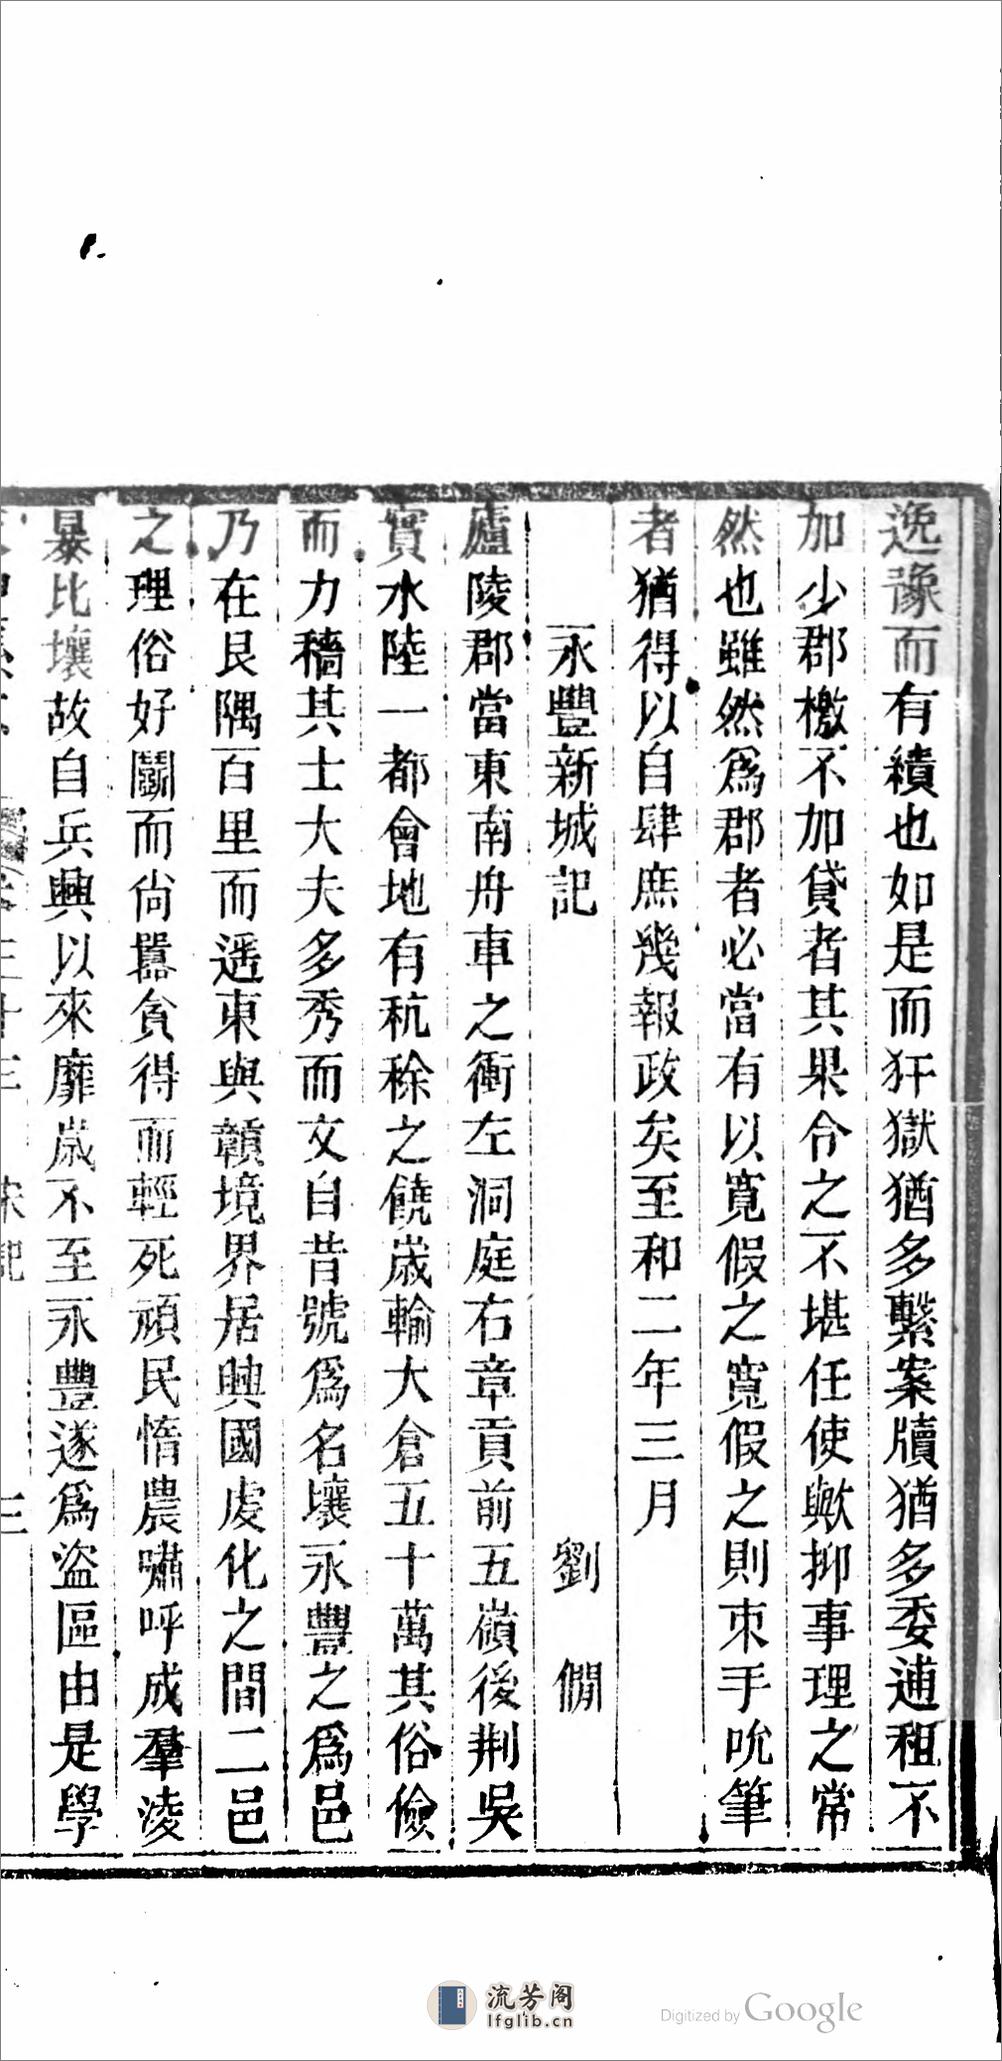 逸豫而有績也如是而犴獄猶多繫案牘猶多委逋租不
加少郡檄不加貸者其果令之不堪任使歟抑事理之常
然也雖然爲郡者必當有以寬假之寬假之則束手吮筆
者猶得以自肆庶幾報政矣至和二年三月
永豐新城記 劉 僩
廬陵郡當東南舟車之衝左洞庭右章貢前五嶺後荆吳
實水陸一都會地有秔稌之饒歲輸大倉五十萬其俗儉
而力穡其士大夫多秀而文自昔號爲名壤永豐之爲邑
乃在艮隅百里而遥東與贛境界居興國虔化之間二邑
之理俗好鬭而尚嚚貪得而輕死頑民惰農嘯呼成羣淩
暴比壤故自兵興以來靡歲不至永豐遂爲盗區由是學
三十三 宋記 三
流芳阁
lfglib.cn
Digitized by Google